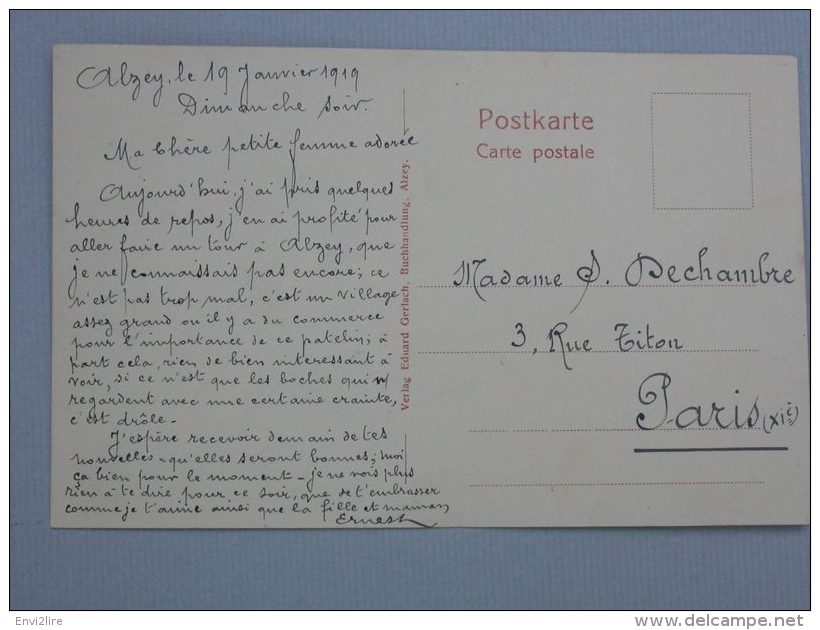 Alzey, le 19 Janvier 1919
Dimanche soir.
Ma Chère petite femme adorée
Aujourd'hui, j'ai pris quelques
heures de repos, j'en ai profité pour
aller faire un tour à Alzey, que
je ne connaissais pas encore; ce
n'est pas trop mal, c'est un village
assez grand ou il y a du commerce
pour l'importance de ce patelin; à
part cela, rien de bien interessant à
voir, si ce n'est que les boches qui n/
regardent avec une certaine crainte,
c'est drôle -
J'espère recevoir demain de tes
nouvelles - qu'elles seront bonnes; moi
ça bien pour le moment - je ne vois plus
rien à te dire pour ce soir, que de t'embrasser
comme je t'aime ainsi que la fille et maman
Ernest
Verlag Eduard Gerlach, Buchhandlung, Alzey.
Postkarte
Carte postale
Madame S. Dechambre
3, Rue Titon
Paris (XIe)
Envi2lire
delcampe.net